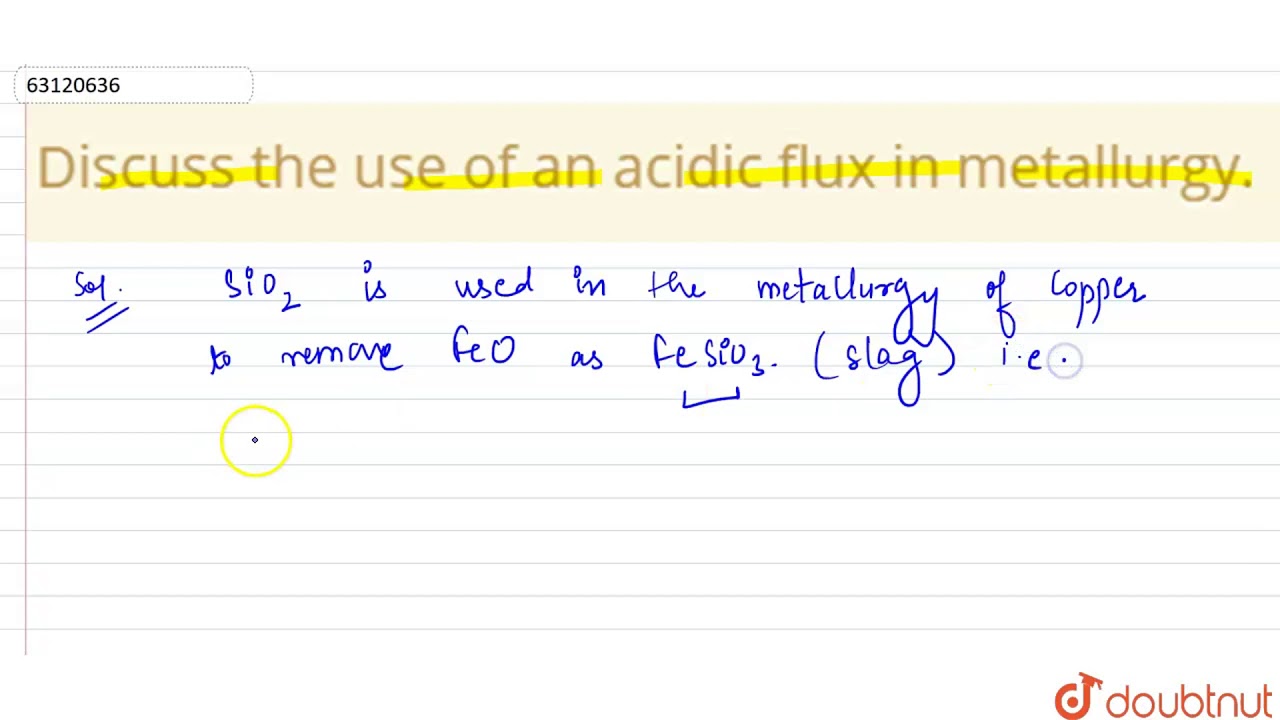 63120636
Discuss the use of an acidic flux in metallurgy.
Sol. SiO₂ is used in the metallurgy of Copper
to remove FeO as FeSiO₃. (slag) i.e.
doubtnut